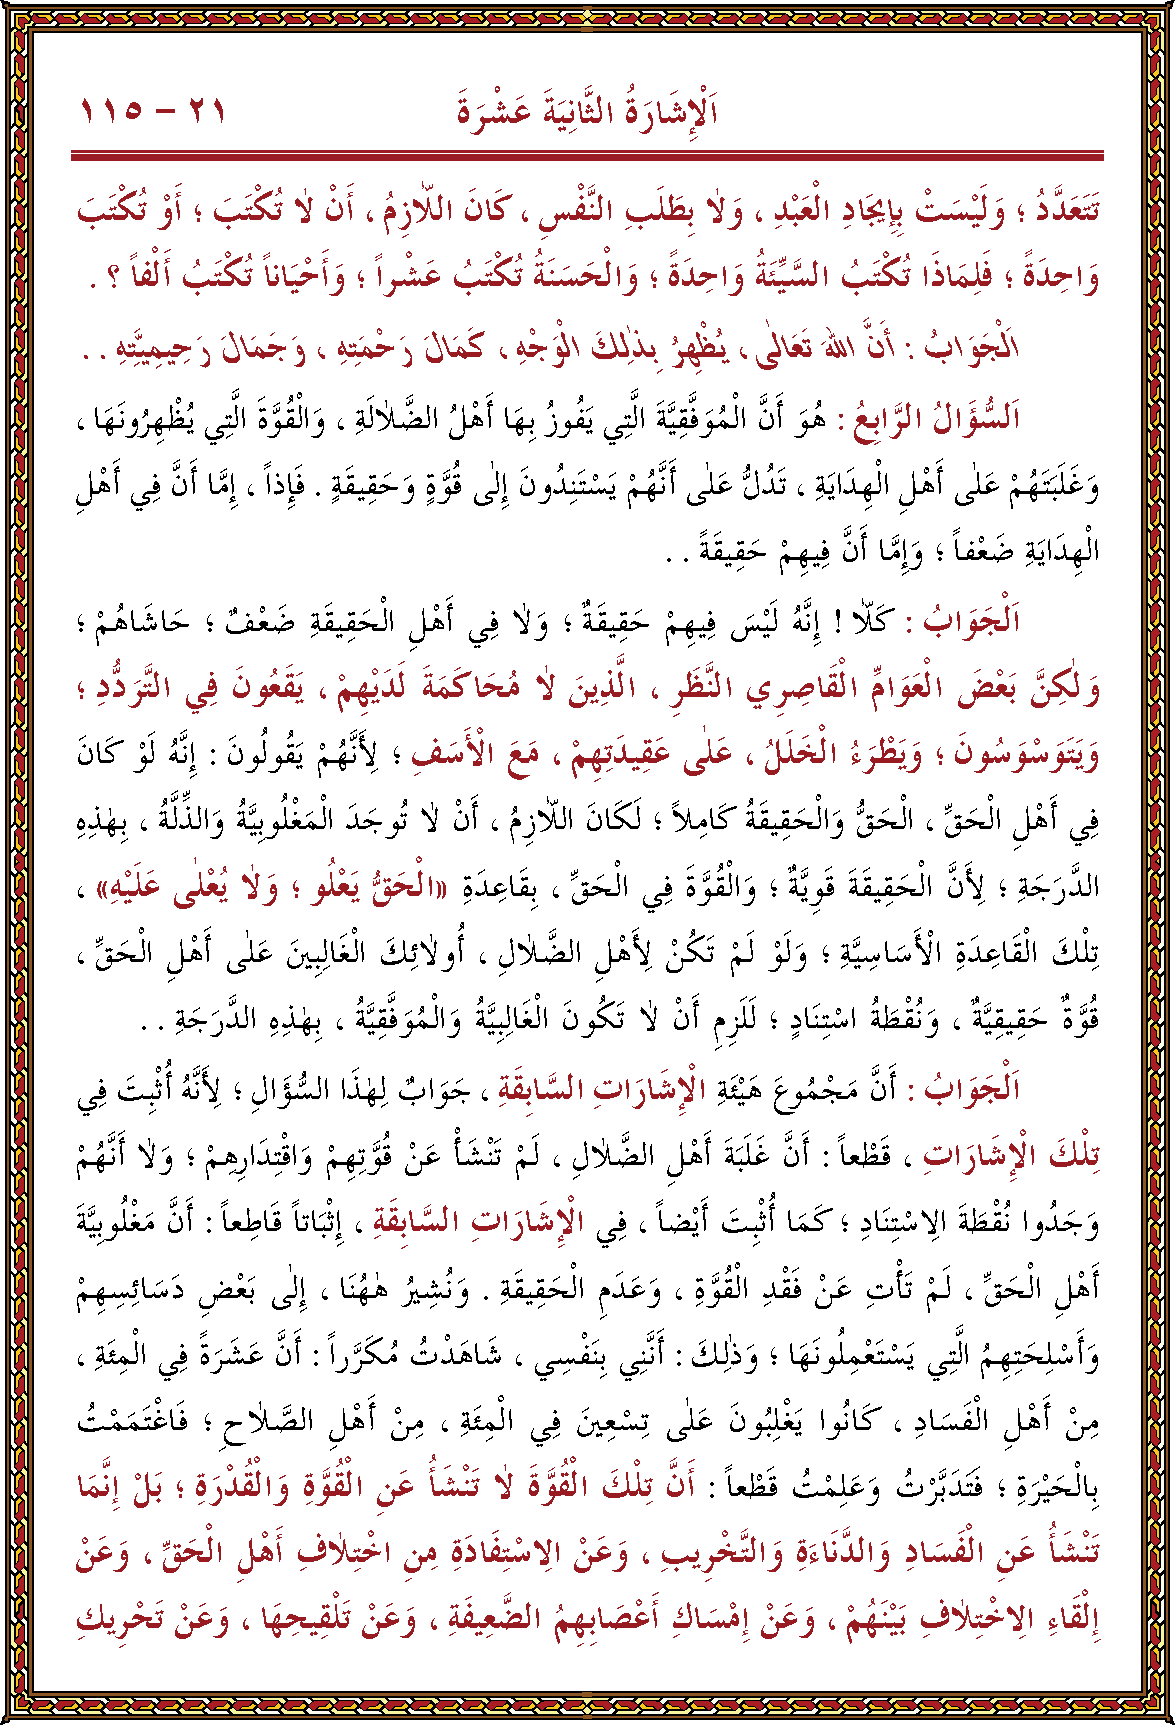 اَلْإِشَارَةُ الثَّانِيَةَ عَشْرَةَ ٢١ – ١١٥
تَتَعَدَّدُ ؛ وَلَيْسَتْ بِإِيجَادِ الْعَبْدِ ، وَلَا بِطَلَبِ النَّفْسِ ، كَانَ اللَّازِمُ ، أَنْ لَا تُكْتَبَ ؛ أَوْ تُكْتَبَ
وَاحِدَةً ؛ فَلِمَاذَا تُكْتَبُ السَّيِّئَةُ وَاحِدَةً ؛ وَالْحَسَنَةُ تُكْتَبُ عَشْراً ؛ وَأَحْيَاناً تُكْتَبُ أَلْفاً ؟ .
اَلْجَوَابُ : أَنَّ اللهَ تَعَالٰى ، يُظْهِرُ بِذٰلِكَ الْوَجْهِ ، كَمَالَ رَحْمَتِهِ ، وَجَمَالَ رَحِيمِيَّتِهِ . .
اَلسُّؤَالُ الرَّابِعُ : هُوَ أَنَّ الْمُوَفَّقِيَّةَ الَّتِي يَفُوزُ بِهَا أَهْلُ الضَّلَالَةِ ، وَالْقُوَّةَ الَّتِي يُظْهِرُونَهَا ،
وَغَلَبَتَهُمْ عَلٰى أَهْلِ الْهِدَايَةِ ، تَدُلُّ عَلٰى أَنَّهُمْ يَسْتَنِدُونَ إِلٰى قُوَّةٍ وَحَقِيقَةٍ . فَإِذاً ، إِمَّا أَنَّ فِي أَهْلِ
الْهِدَايَةِ ضَعْفاً ؛ وَإِمَّا أَنَّ فِيهِمْ حَقِيقَةً . .
اَلْجَوَابُ : كَلَّا ! إِنَّهُ لَيْسَ فِيهِمْ حَقِيقَةٌ ؛ وَلَا فِي أَهْلِ الْحَقِيقَةِ ضَعْفٌ ؛ حَاشَاهُمْ ؛
وَلٰكِنَّ بَعْضَ الْعَوَامِّ الْقَاصِرِي النَّظَرِ ، الَّذِينَ لَا مُحَاكَمَةَ لَدَيْهِمْ ، يَقَعُونَ فِي التَّرَدُّدِ ؛
وَيَتَوَسْوَسُونَ ؛ وَيَطْرَءُ الْخَلَلُ ، عَلٰى عَقِيدَتِهِمْ ، مَعَ الْأَسَفِ ؛ لِأَنَّهُمْ يَقُولُونَ : إِنَّهُ لَوْ كَانَ
فِي أَهْلِ الْحَقِّ ، الْحَقُّ وَالْحَقِيقَةُ كَامِلاً ؛ لَكَانَ اللَّازِمُ ، أَنْ لَا تُوجَدَ الْمَغْلُوبِيَّةُ وَالذِّلَّةُ ، بِهٰذِهِ
الدَّرَجَةِ ؛ لِأَنَّ الْحَقِيقَةَ قَوِيَّةٌ ؛ وَالْقُوَّةَ فِي الْحَقِّ ، بِقَاعِدَةِ «الْحَقُّ يَعْلُو ؛ وَلَا يُعْلٰى عَلَيْهِ» ،
تِلْكَ الْقَاعِدَةِ الْأَسَاسِيَّةِ ؛ وَلَوْ لَمْ تَكُنْ لِأَهْلِ الضَّلَالِ ، أُولَائِكَ الْغَالِبِينَ عَلٰى أَهْلِ الْحَقِّ ،
قُوَّةٌ حَقِيقِيَّةٌ ، وَنُقْطَةُ اسْتِنَادٍ ؛ لَلَزِمَ أَنْ لَا تَكُونَ الْغَالِبِيَّةُ وَالْمُوَفَّقِيَّةُ ، بِهٰذِهِ الدَّرَجَةِ . .
اَلْجَوَابُ : أَنَّ مَجْمُوعَ هَيْئَةِ الْإِشَارَاتِ السَّابِقَةِ ، جَوَابٌ لِهٰذَا السُّؤَالِ ؛ لِأَنَّهُ أُثْبِتَ فِي
تِلْكَ الْإِشَارَاتِ ، قَطْعاً : أَنَّ غَلَبَةَ أَهْلِ الضَّلَالِ ، لَمْ تَنْشَأْ عَنْ قُوَّتِهِمْ وَاقْتِدَارِهِمْ ؛ وَلَا أَنَّهُمْ
وَجَدُوا نُقْطَةَ الِاسْتِنَادِ ؛ كَمَا أُثْبِتَ أَيْضاً ، فِي الْإِشَارَاتِ السَّابِقَةِ ، إِثْبَاتاً قَاطِعاً : أَنَّ مَغْلُوبِيَّةَ
أَهْلِ الْحَقِّ ، لَمْ تَأْتِ عَنْ فَقْدِ الْقُوَّةِ ، وَعَدَمِ الْحَقِيقَةِ . وَنُشِيرُ هٰهُنَا ، إِلٰى بَعْضِ دَسَائِسِهِمْ
وَأَسْلِحَتِهِمُ الَّتِي يَسْتَعْمِلُونَهَا ؛ وَذٰلِكَ : أَنَّنِي بِنَفْسِي ، شَاهَدْتُ مُكَرَّراً : أَنَّ عَشَرَةً فِي الْمِئَةِ ،
مِنْ أَهْلِ الْفَسَادِ ، كَانُوا يَغْلِبُونَ عَلٰى تِسْعِينَ فِي الْمِئَةِ ، مِنْ أَهْلِ الصَّلَاحِ ؛ فَاغْتَمَمْتُ
بِالْحَيْرَةِ ؛ فَتَدَبَّرْتُ وَعَلِمْتُ قَطْعاً : أَنَّ تِلْكَ الْقُوَّةَ لَا تَنْشَأُ عَنِ الْقُوَّةِ وَالْقُدْرَةِ ؛ بَلْ إِنَّمَا
تَنْشَأُ عَنِ الْفَسَادِ وَالدَّنَاءَةِ وَالتَّخْرِيبِ ، وَعَنْ الِاسْتِفَادَةِ مِنِ اخْتِلَافِ أَهْلِ الْحَقِّ ، وَعَنْ
إِلْقَاءِ الِاخْتِلَافِ بَيْنَهُمْ ، وَعَنْ إِمْسَاكِ أَعْصَابِهِمُ الضَّعِيفَةِ ، وَعَنْ تَلْقِيحِهَا ، وَعَنْ تَحْرِيكِ